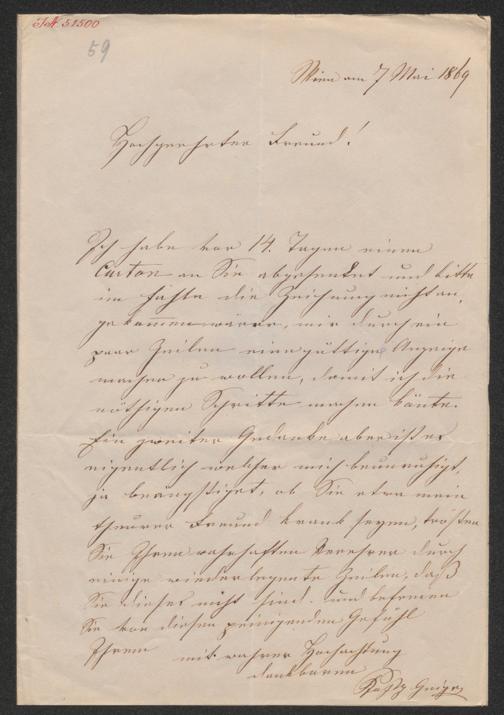 J.N. 51500
59
Wien am 7 Mai 1869
Hochgeehrter Freund!
Ich habe vor 14. Tagen einen
Carton an Sie abgesenket und bitte
im fahle die Zeichnung nicht an,
gekommen wäre, mir durch ein
paar Zeilen eine güttige Anzeige
machen zu wollen, damit ich die
nöthigen Schritte machen könte.
Ein zweiter Gedanke aber ist es
eigentlich welcher mich beunruhigt,
ja beängstiget, ob Sie etwa mein
theurer Freund krank seyen, trösten
Sie Ihren wahrhaften Verehrer durch
einige wiederlegente Zeilen, daß
Sie dieses nicht sind. und befreien
Sie von diesen peinigenden Gefühl
Ihren mit wahrer Hochachtung
dankbaren
Geiger